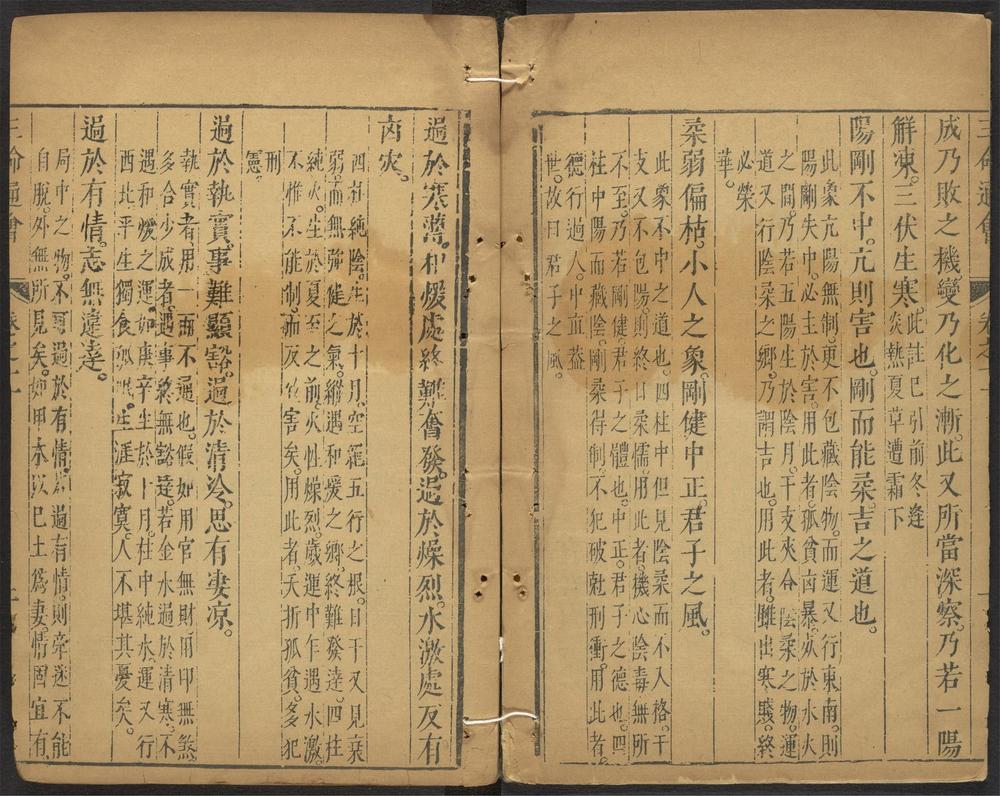 三命通會 卷之
成乃敗之機變乃化之漸。此又所當深察。乃若一陽
解凍。三伏生寒。此註已引前冬逢
炎熱夏草遭霜下
陽剛不中。亢則害也。剛而能柔。吉之道也。
此象亢陽無制。更不包藏陰物。而運又行東南。則
陽剛失中。必主於害。用此者。孤貧凶暴。如於水火
之間。乃若五陽生於陰月。干支夾合陰柔之物。運
道又行陰柔之鄉。乃謂吉也。用此者。雖出寒賤。終
必榮
華。
柔弱偏枯。小人之象。剛健中正。君子之風。
此象不中之道也。四柱中但見陰柔而不入格。干
支又不包陽。則終日柔懦。用此者。機心陰毒無所
不至。乃若剛健。君子之體也。中正。君子之德也。四
柱中陽而藏陰。剛柔得制。不犯破尅刑衝。用此者。
德行過人。中直蓋
世。故曰君子之風。
過於寒薄。和煖處終難奮發。過於燥烈。水激處反有
凶災。
四柱純陰。生於十月。空範五行之根。日干又見衰
弱。而無強健之氣。縱遇和煖之鄉。終難發達。四柱
純火。生於夏至之前。火性燥烈。歲運中乍遇水激。
不惟不能制。而反為害矣。用此者。夭折孤貧。多犯
刑
憲。
過於執實。事難顯豁。過於清冷。思有凄凉。
執實者。用一而不通也。假如用官無財。用印無煞。
多合少成者。遇事終無豁達。若金水過於清寒。不
遇和煖之運。如庚辛生於十月。柱中純水。運又行
西北。平生獨食孤眠。生涯寂寞。人不堪其憂矣。
過於有情。志無遠達。
局中之物。不可過於有情。若過有情。則牽迷不能
自脫。外無所見矣。如甲木以己土為妻。情固宜有
三命通會 卷之二